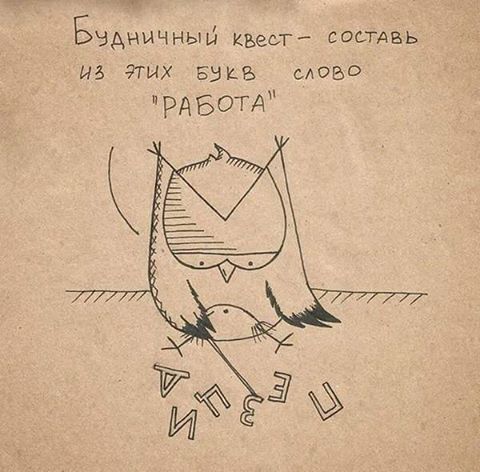 Будничный квест – составь
из этих букв слово
"РАБОТА"
Д Ц И З Е П